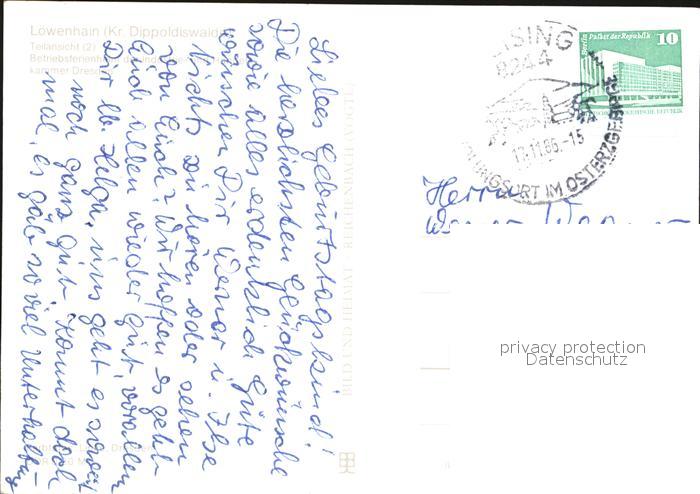 Löwenhain (Kr. Dippoldiswalde)
Teilansicht (2)
Betriebsferienheim der Industrie-
kammer Dresden
Liebes Geburtstagskind!
Die herzlichsten Glückwünsche
sowie alles erdenklich Gute
wünschen Dir Werner u. Ilse
Nichts zu hören oder sehen
von Euch? Wir hoffen es geht
Euch allen wieder gut, vor allem
Dir lb. Helga, uns geht es soweit
noch ganz gut. Kommt doch
mal, es gäb so viel Unterhaltung
BILD UND HEIMAT REICHENBACH
Berlin Palast der Republik
10
DEUTSCHE DEMOKRATISCHE REPUBLIK
8244
13.11.86.-15
ERHOLUNGSORT IM OSTERZGEBIRGE
Herrn
Werner Wagner
privacy protection
Datenschutz